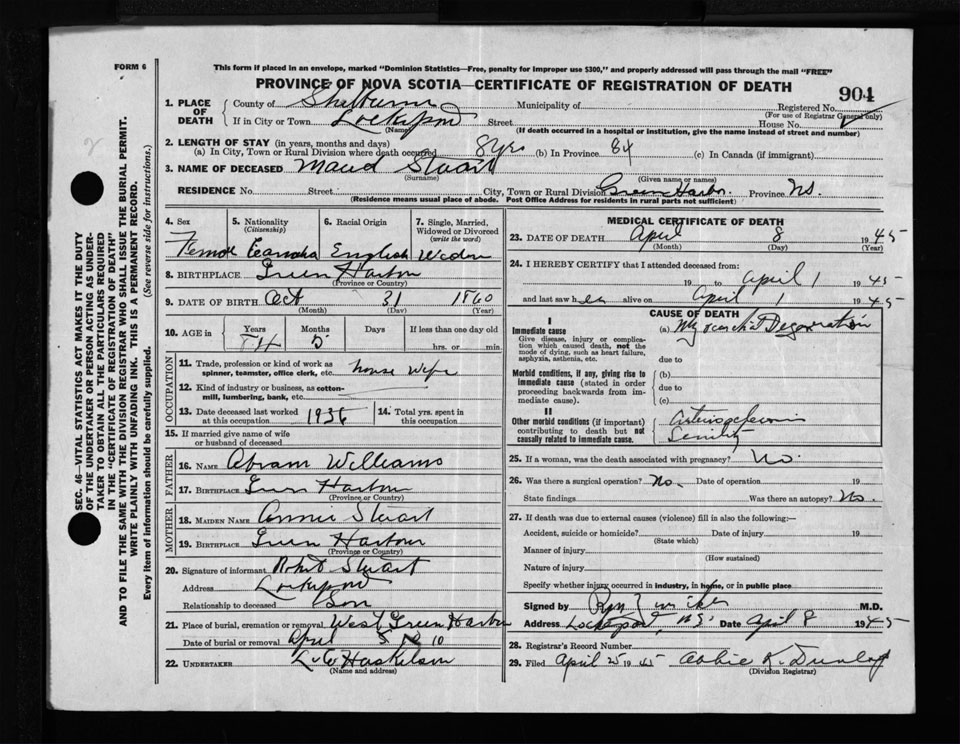 FORM 6
This form if placed in an envelope, marked "Dominion Statistics—Free, penalty for improper use $300," and properly addressed will pass through the mail "FREE"
PROVINCE OF NOVA SCOTIA—CERTIFICATE OF REGISTRATION OF DEATH
904
1. PLACE OF DEATH
County of Shelburne Municipality of Registered No.
(For use of Registrar General only)
If in City or Town Lockeport Street House No.
(Name) (If death occurred in a hospital or institution, give the name instead of street and number)
2. LENGTH OF STAY (in years, months and days)
(a) In City, Town or Rural Division where death occurred 8 yrs (b) In Province 84 (c) In Canada (if immigrant)
3. NAME OF DECEASED Maud Stuart
(Surname) (Given name or names)
RESIDENCE No. Street City, Town or Rural Division Green Harbor. Province N.S.
(Residence means usual place of abode. Post Office Address for residents in rural parts not sufficient)
4. Sex 5. Nationality (Citizenship) 6. Racial Origin 7. Single, Married, Widowed or Divorced (write the word)
Female Canada English Widow
8. BIRTHPLACE Green Harbour
(Province or Country)
9. DATE OF BIRTH Oct 31 1860
(Month) (Day) (Year)
10. AGE in Years Months Days If less than one day old
84 5 hrs. or min.
OCCUPATION
11. Trade, profession or kind of work as spinner, teamster, office clerk, etc. house wife
12. Kind of industry or business, as cotton-mill, lumbering, bank, etc.
13. Date deceased last worked at this occupation 1936 14. Total yrs. spent in this occupation
15. If married give name of wife or husband of deceased
FATHER
16. NAME Abram Williams
17. BIRTHPLACE Green Harbour
(Province or Country)
MOTHER
18. MAIDEN NAME Annie Stuart
19. BIRTHPLACE Green Harbour
(Province or Country)
20. Signature of informant Robt Stuart
Address Lockeport
Relationship to deceased Son
21. Place of burial, cremation or removal West Green Harbor
Date of burial or removal April 10
22. UNDERTAKER
(Name and address)
MEDICAL CERTIFICATE OF DEATH
23. DATE OF DEATH April 8 1945
(Month) (Day)
24. I HEREBY CERTIFY that I attended deceased from:
19 to April 1 1945
and last saw her alive on April 1 1945
CAUSE OF DEATH
I
Immediate cause (a) Myocardial Degeneration
Give disease, injury or complication which caused death, not the mode of dying, such as heart failure, asphyxia, asthenia, etc.
due to
Morbid conditions, if any, giving rise to immediate cause (stated in order proceeding backwards from immediate cause).
(b)
due to
(c)
II
Other morbid conditions (if important) contributing to death but not causally related to immediate cause.
Senility
25. If a woman, was the death associated with pregnancy? No.
26. Was there a surgical operation? No. Date of operation 19
State findings Was there an autopsy? No.
27. If death was due to external causes (violence) fill in also the following:—
Accident, suicide or homicide? Date of injury 19
(State which)
Manner of injury
(How sustained)
Nature of injury
Specify whether injury occurred in industry, in home, or in public place
Signed by M.D.
Address Lockeport, N.S. Date April 8 1945
28. Registrar's Record Number
29. Filed April 25 1945 Abbie K. Dunlop
(Division Registrar)
SEC. 46—VITAL STATISTICS ACT MAKES IT THE DUTY
OF THE UNDERTAKER OR PERSON ACTING AS UNDER-
TAKER TO OBTAIN ALL THE PARTICULARS REQUIRED
IN THE "CERTIFICATE OF REGISTRATION OF DEATH"
AND TO FILE THE SAME WITH THE DIVISION REGISTRAR WHO SHALL ISSUE THE BURIAL PERMIT.
WRITE PLAINLY WITH UNFADING INK. THIS IS A PERMANENT RECORD.
Every item of information should be carefully supplied. (See reverse side for instructions.)